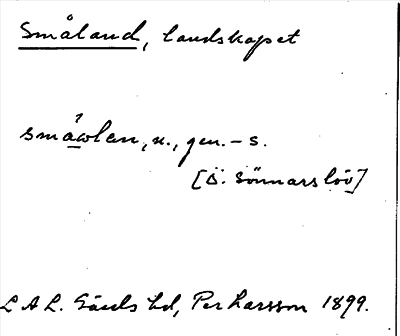 Småland, landskapet
småωlan, n., gen. – s.
[Ö. Sönnarslöv]
L A L. Gärds hd, Per Larsson 1899.